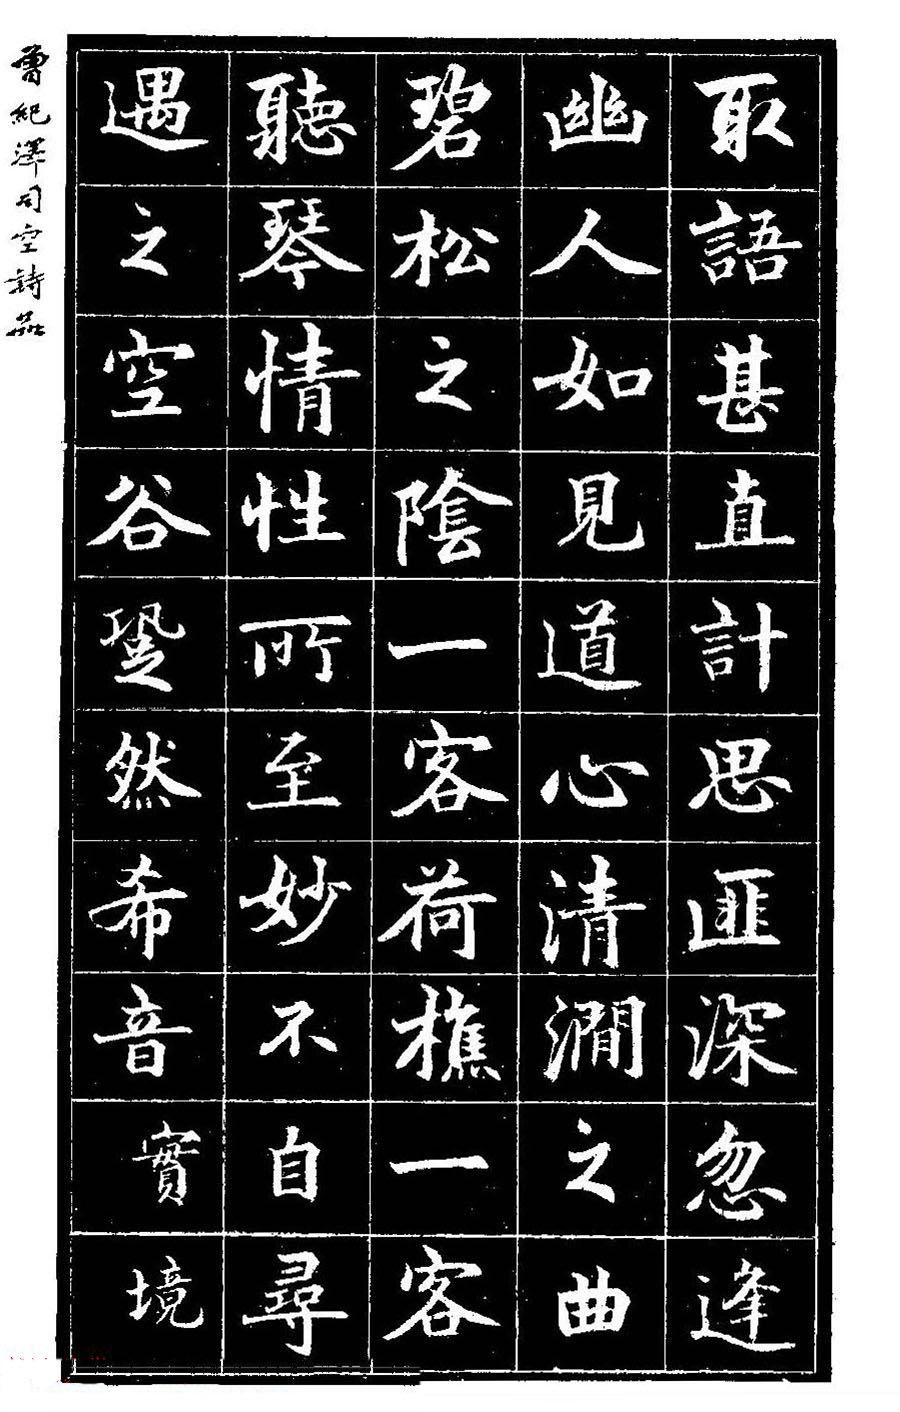 取語甚直計思匪深忽逢
幽人如見道心清澗之曲
碧松之陰一客荷樵一客
聽琴情性所至妙不自尋
遇之空谷跫然希音實境
曾紀澤司空詩品